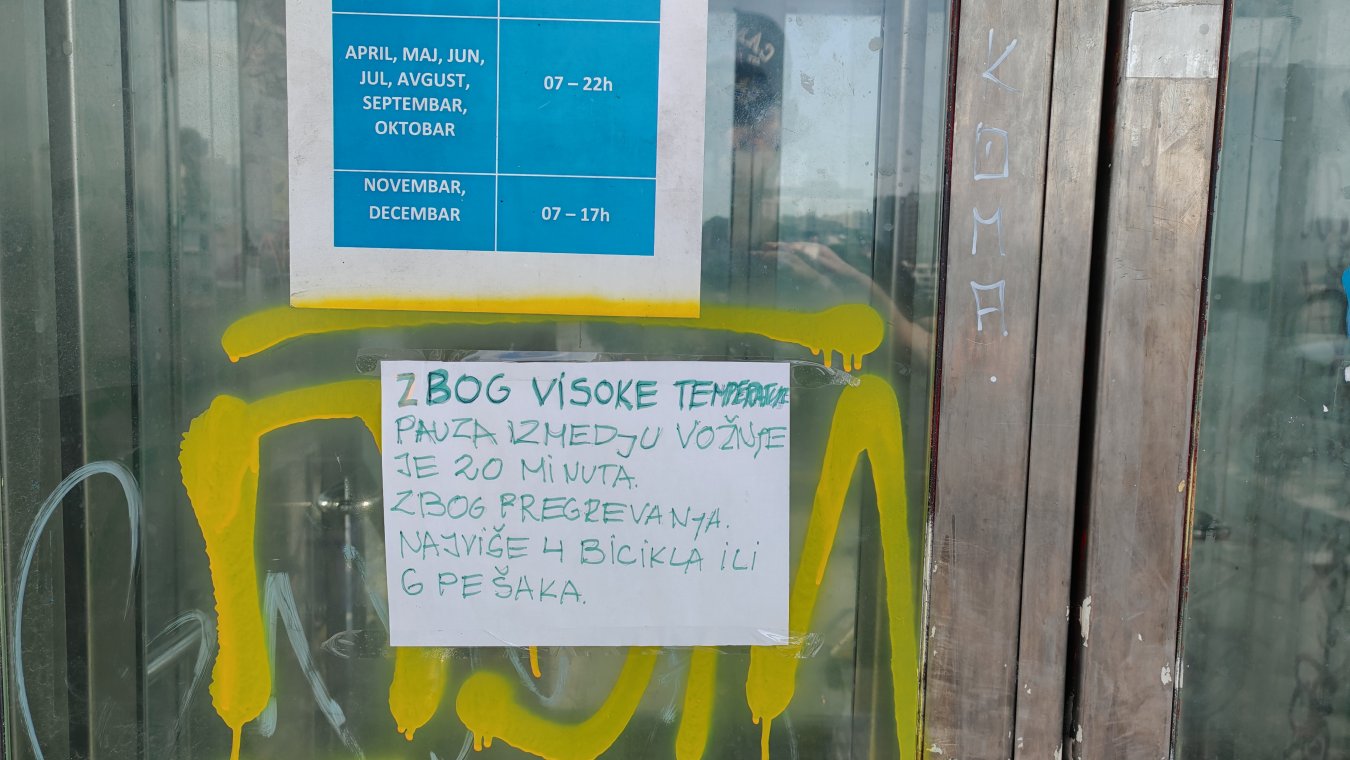 APRIL, MAJ, JUN,
JUL, AVGUST,
SEPTEMBAR,
OKTOBAR
07 – 22h
NOVEMBAR,
DECEMBAR
07 – 17h
ZBOG VISOKE TEMPERATURE
PAUZA IZMEDJU VOŽNJE
JE 20 MINUTA.
ZBOG PREGREVANJA.
NAJVIŠE 4 BICIKLA ILI
6 PEŠAKA.